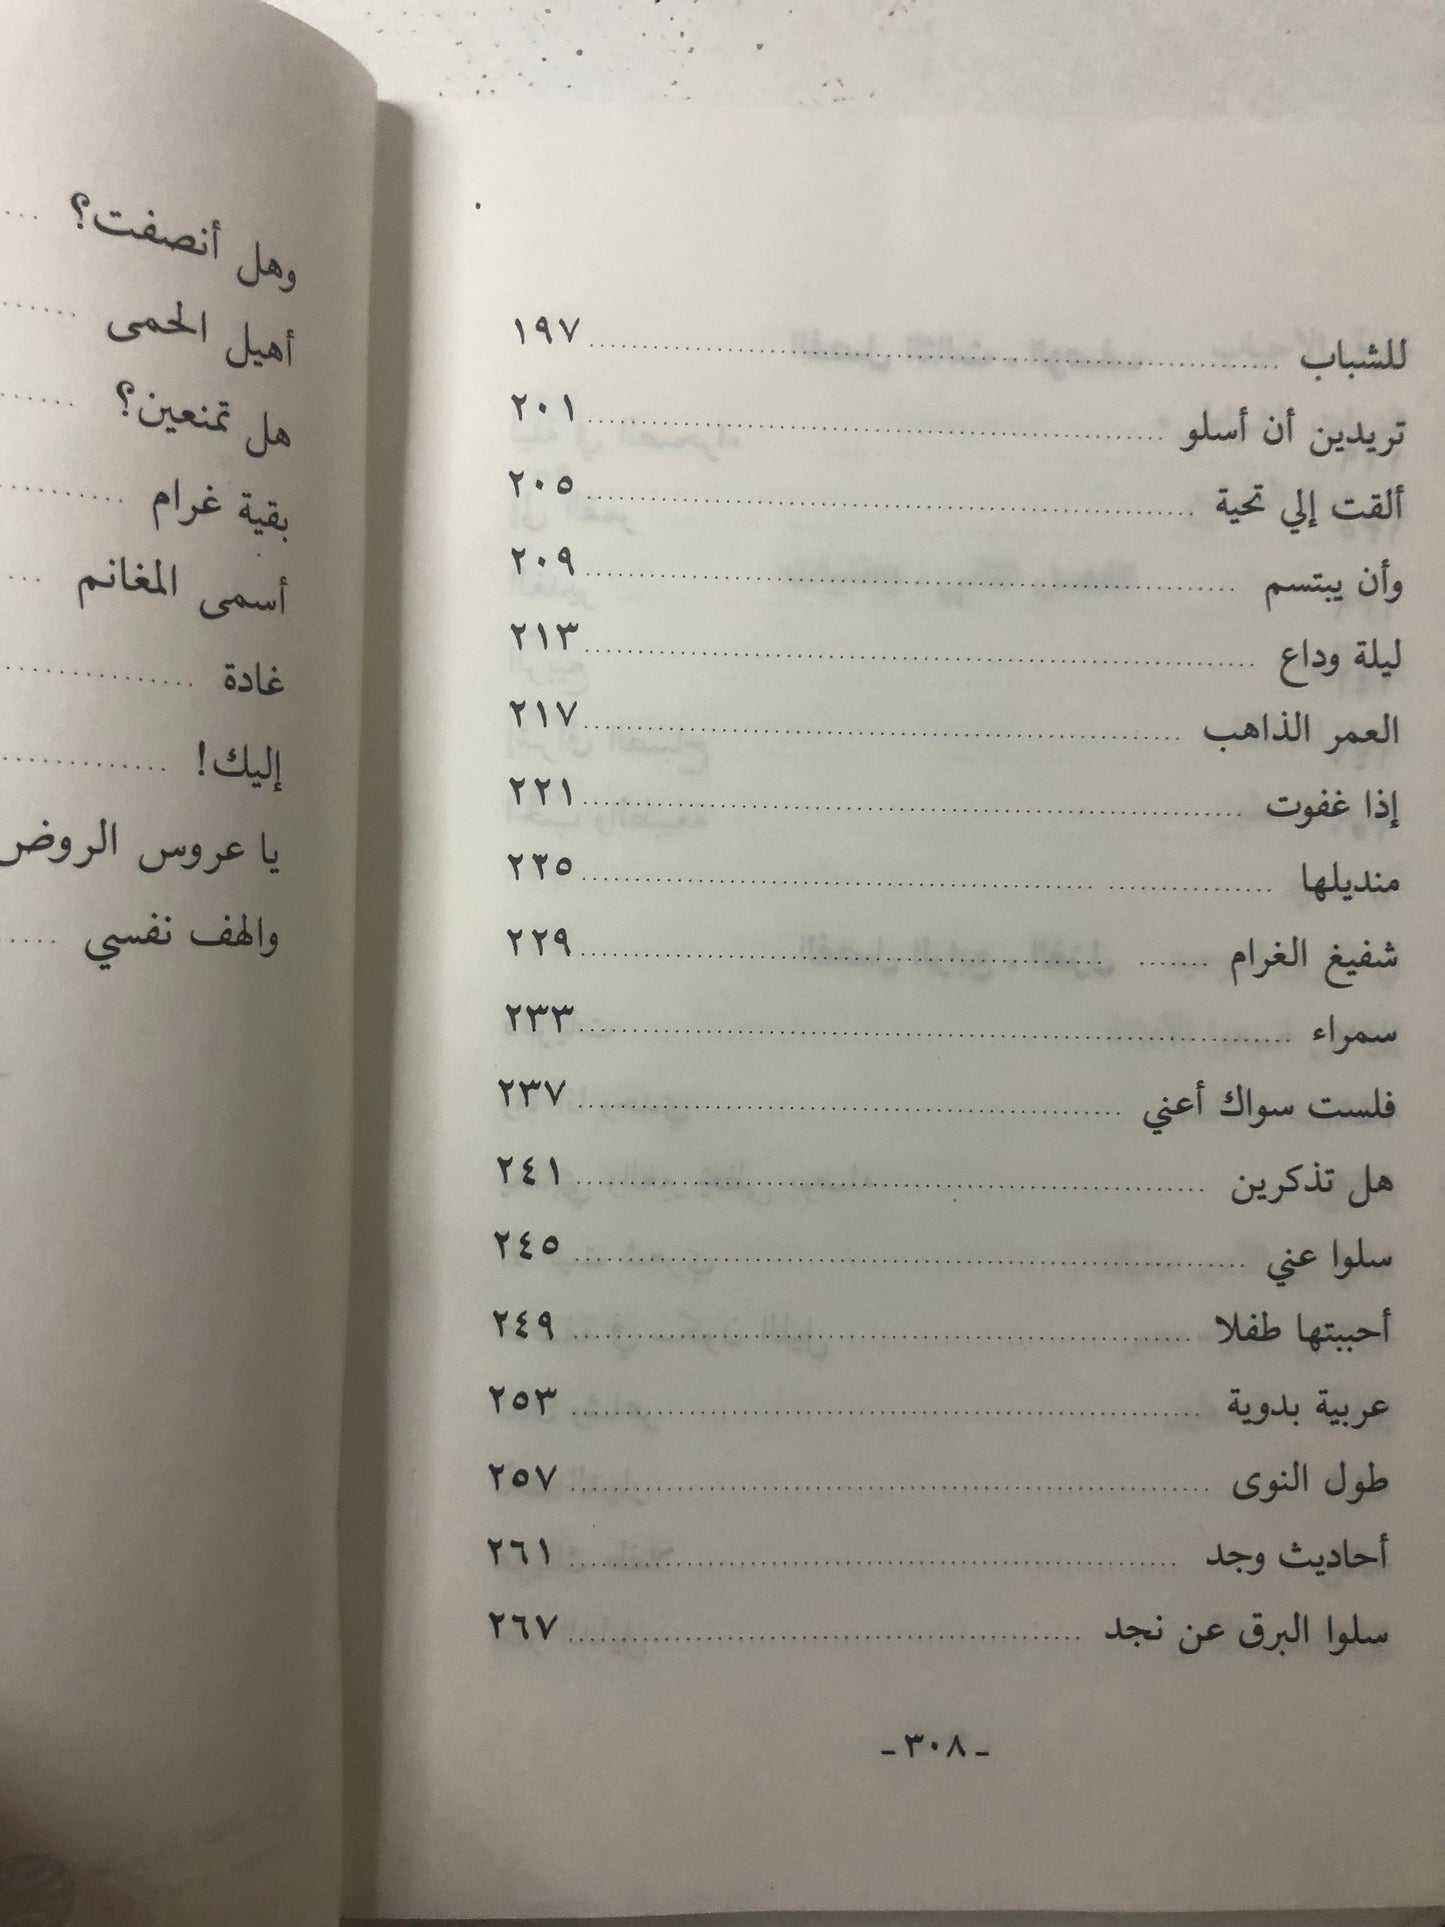 للشباب ........ ١٩٧
تريدين أن أسلو ........ ٢٠١
ألقت إلي تحية ........ ٢٠٥
وأن يبتسم ........ ٢٠٩
ليلة وداع ........ ٢١٣
العمر الذاهب ........ ٢١٧
إذا غفوت ........ ٢٢١
منديلها ........ ٢٢٥
شفيغ الغرام ........ ٢٢٩
سمراء ........ ٢٣٣
فلست سواك أعني ........ ٢٣٧
هل تذكرين ........ ٢٤١
سلوا عني ........ ٢٤٥
أحببتها طفلا ........ ٢٤٩
عربية بدوية ........ ٢٥٣
طول النوى ........ ٢٥٧
أحاديث وجد ........ ٢٦١
سلوا البرق عن نجد ........ ٢٦٧
- ٣٠٨ -
وهل أنصفت؟ ...
أهيل الحمى ......
هل تمنعين؟ ......
بقية غرام ........
أسمى المغانم ...
غادة ........
إليك! ........
يا عروس الروض
والهف نفسي .....